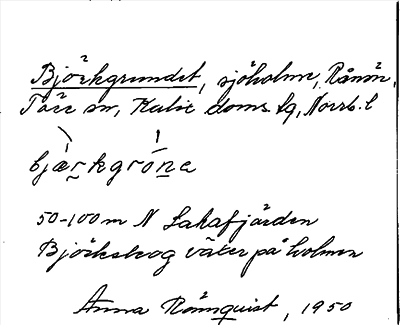 Björkgrundet, sjöholme, Rånön,
Töre sn, Kalix doms. tg, Norrb. l
bjærkgróna
50-100 m N Lakafjärden
Björkskog växer på holmen
Anna Rönnquist, 1950